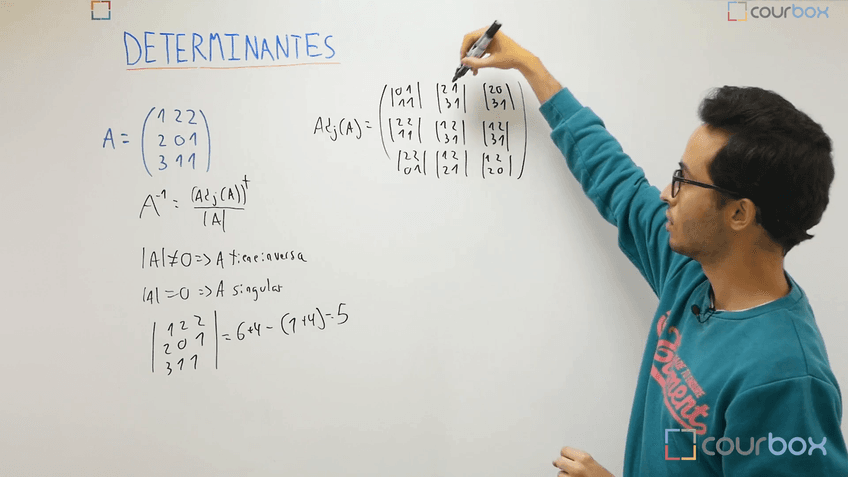 courbox
DETERMINANTES
A = (1 2 2
2 0 1
3 1 1)
Adj(A) = (|0 1 1 1| |2 1 3 1| |2 0 3 1|
|2 2 1 1| |1 2 3 1| |1 2 3 1|
|2 2 0 1| |1 2 2 1| |1 2 2 0|)
A⁻¹ = (Adj(A))ᵗ / |A|
|A| ≠ 0 => A tiene inversa
|A| = 0 => A singular
|1 2 2
2 0 1
3 1 1| = 6+4 - (1+4) = 5
courbox